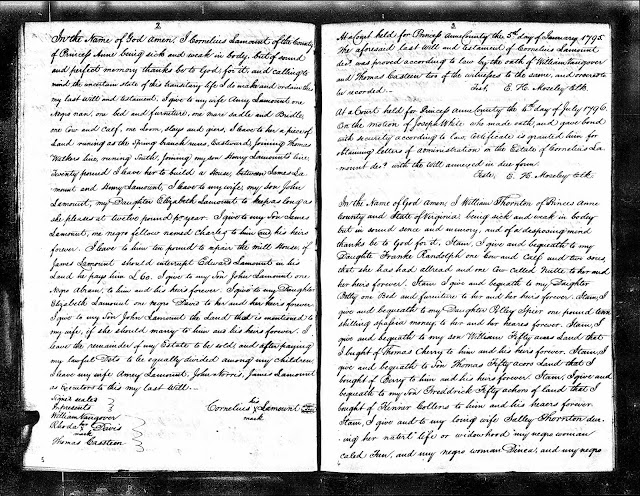 2.
In the Name of God amen, I Cornelius Lamount of the County
of Princess Anne being sick and weak in body, but of sound
and perfect memory thanks be to God, for it, and calling to
mind the uncertain state of this transitory life I do make and ordain this
my last will and testament. I give to my wife Amey Lamount one
Negro nan, one bed and furniture, one mare sadle and Bridle,
one Cow and Calf, one Loom, slays and giers, I leave to her a piece of
Land runing as the Spring branch runs, Eastward, joining Thomas
Walkers line, runing South, Joining my son Henry Lamounts line,
Twenty pound I leave her to build a House, between James La
mount and Henry Lamount, I leave to my wife, my son John
Lamount, my Daughter Elizabeth Lamount to keep as long as
she pleases at twelve pound pr year. I give to my Son James
Lamount, one negro fellow named Charley to him and his heirs
forever. I leave to him ten pound to apair the mill House, if
James Lamount should interrupt Edward Lamount in his
Land he pays him L 60. I give to my Son John Lamount one
Negro Abram, to him and his heirs forever. I give to my Daughter
Elizabeth Lamount one Negro Davis to her and her heirs forever
I give to my Son John Lamount the Land that is mentioned to
my wife, if she should marry to him and his heirs forever. I
leave the remainder of my Estate to be sold, and after paying
my lawful Dets to be equally divided among my children,
I leave my wife Amey Lamount, John Norris, James Lamount
as Executors to this my last Will.
Signed seales
In presents
William Vangover
Rhoda Davis
mark
Thomas Casteen
his
Cornelius x Lamount
mark
3.
At a Court held for Princess Anne County the 5th day of January 1795
The aforesaid last Will and testament of Cornelius Lamount
decd was proved according to law by the oath of William Vangover
and Thomas Casteen two of the witnesses to the same, and ordered to
be recorded.
Test, E. H. Moseley Clk.
At a Court held for Princess Anne County the 4th day of July 1796.
On the motion of Joseph White who made oath, and gave bond
with security according to law, Certificate is granted him for
obtaining letters of administration on the Estate of Cornelius La
mount decd with the Will annexed in due form.
Teste, E. H. Moseley Clk.
In the Name of God amen; I William Thornton of Princes Anne
County and State of Virginia being sick and weak in bodey
but in sound sence and memory, and of a desposing mind
thanks be to God for it. Itam, I give and bequeath to my
Daughter Franke Randolph one Cow and Calf and two sows,
that she has had allread and one Cow called Nutte to her and
her heirs forever. Itam I give and bequeath to my Daughter
Betty one Bed and furniture to her and her heirs forever. Itam, I
give and bequeath to my Daughter Betsey Spier one pound tenn
shilling apafire money to her and her heares forever. Itam, I
give and bequeath to my son William Fifty acers Land that
I bought of Thomas Cherry to him and his heirs forever. Itam, I
give and bequeath to Son Thomas Fifty acors Land that I
bought of Berry to him and his heirs forever. Itam, I give and
bequeath to my Son Freddrick Fifty achors of land that I
bought of Kenner Collons to him and his heares forever.
Itam, I give and to my loving wife Salley Thornton dur-
ing her natrl life or widowhood my negro woman
caled Fan, and my negro woman Dinea, and my negro